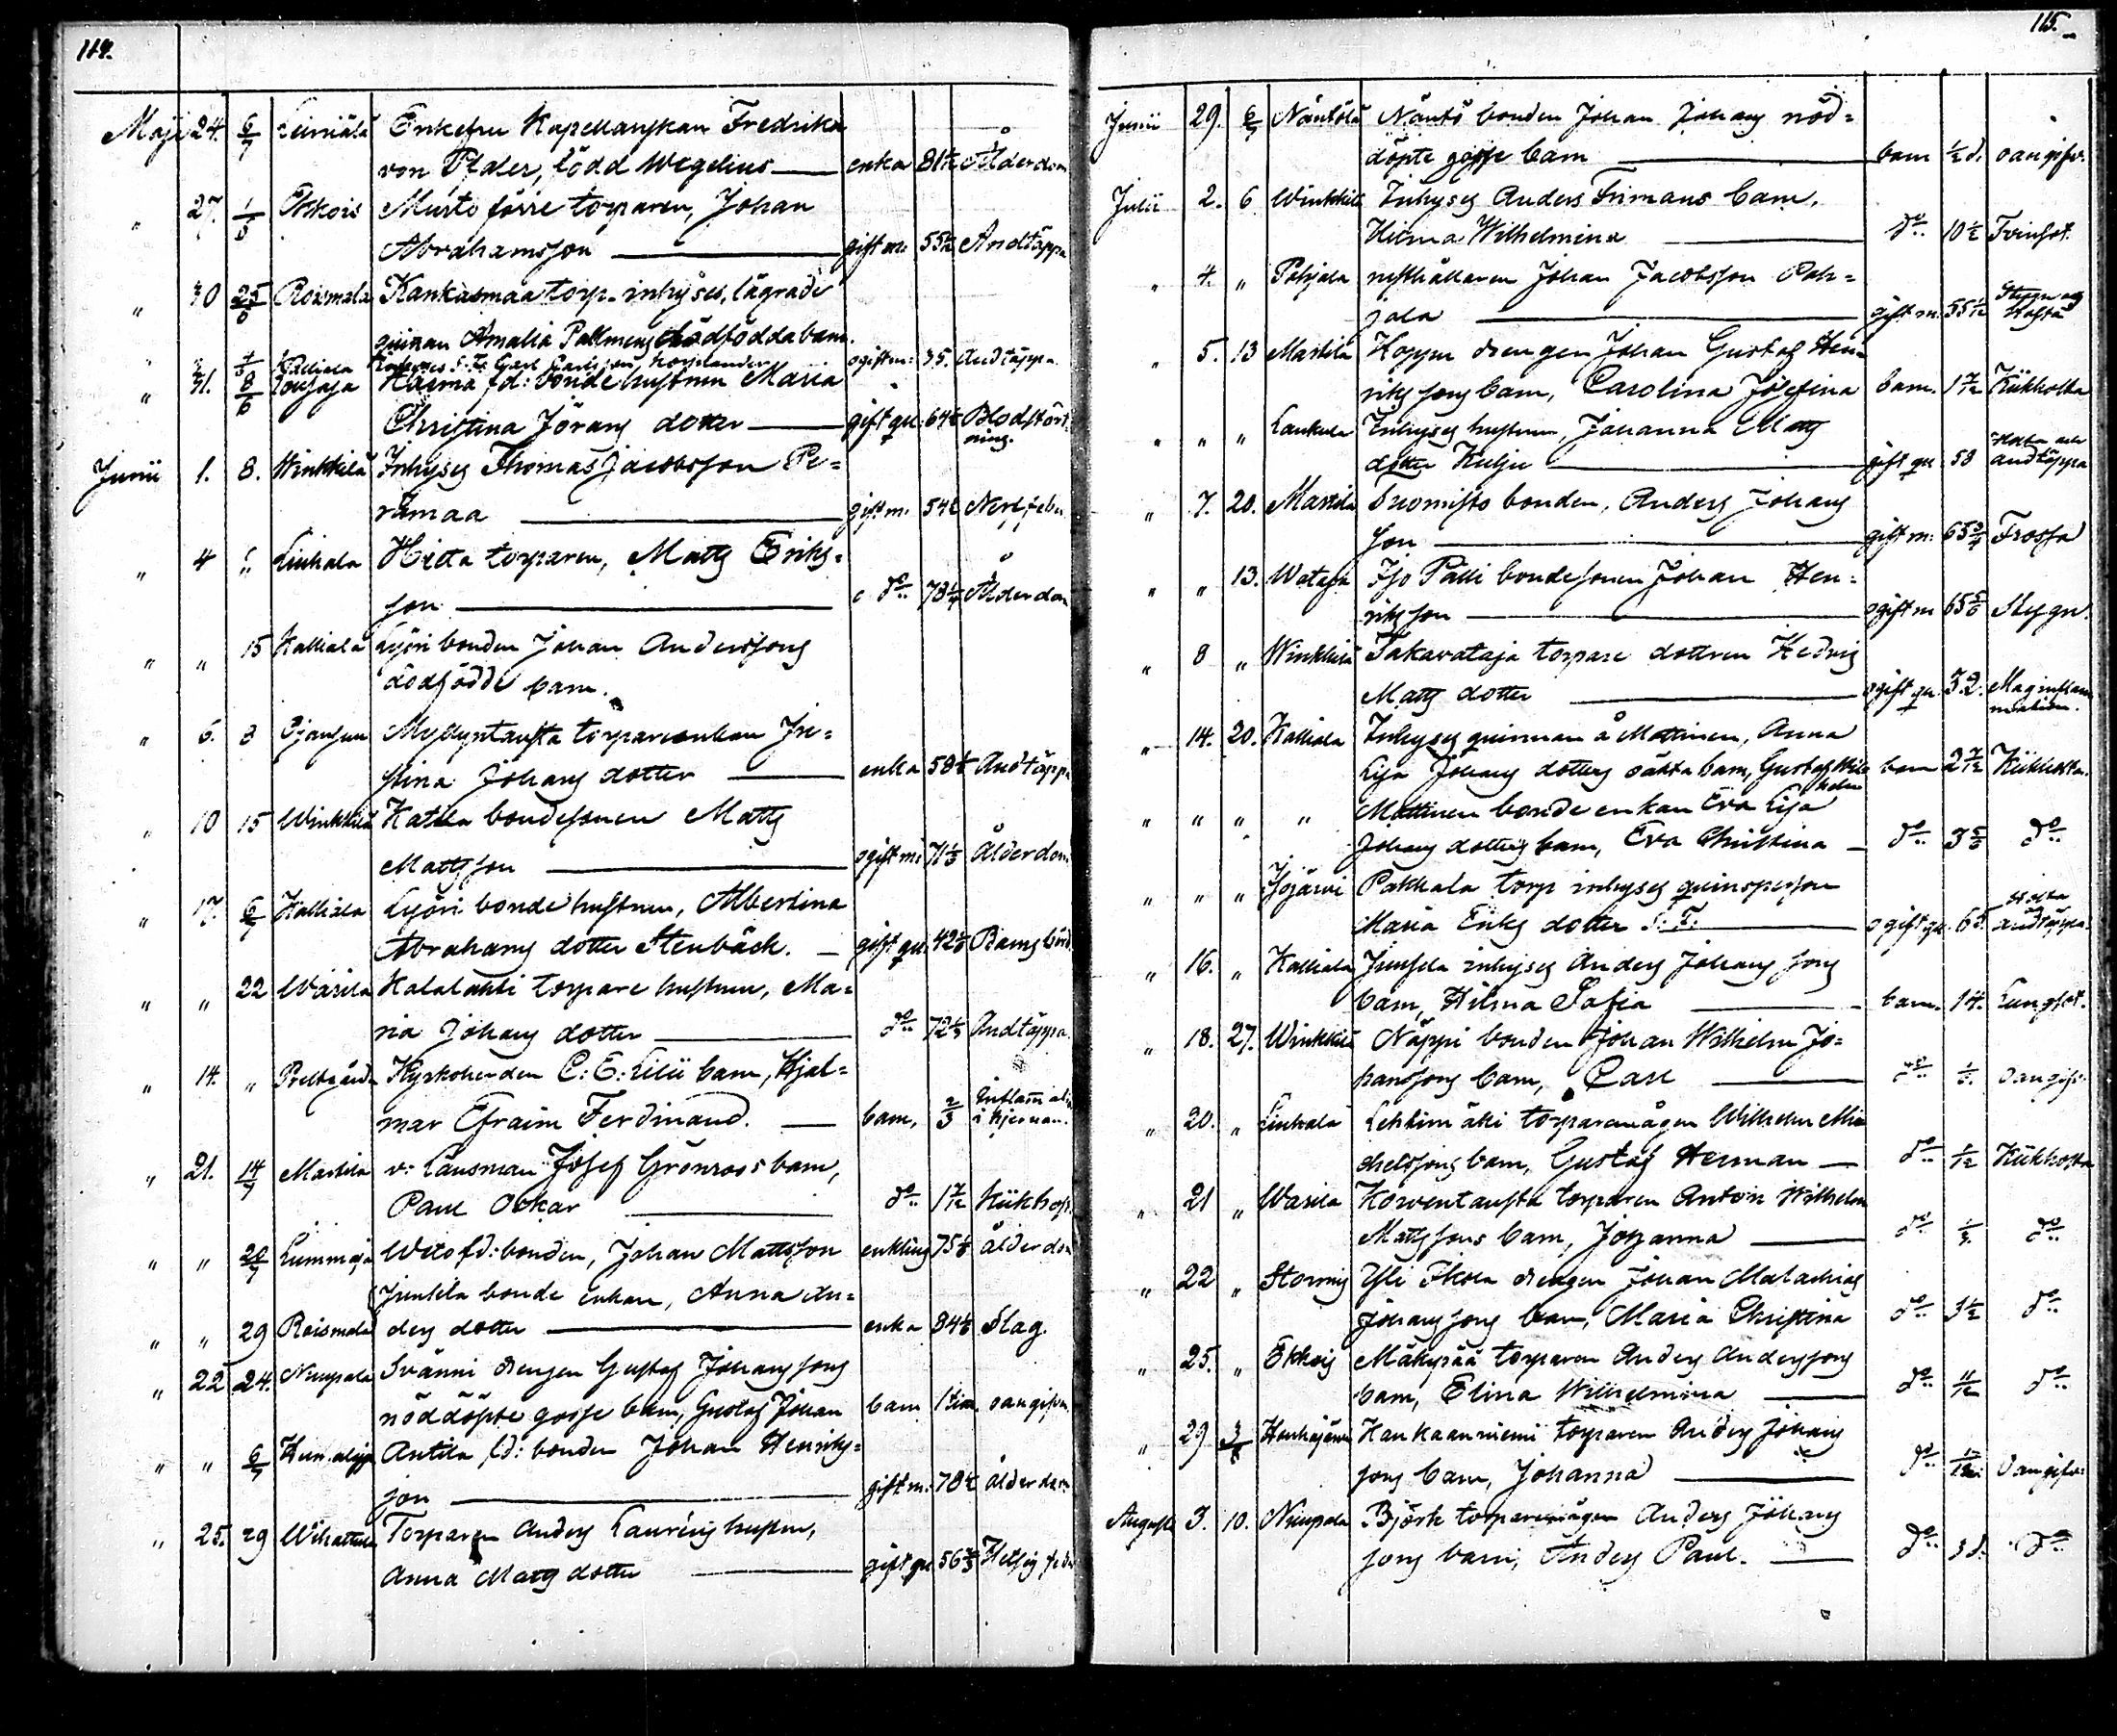 114.
Maji 24. 6/7 Liuniälä Enkefru Kapellanskan Fredrika
von Pfaler, född Wegelius enka 81 1/2 Ålderdom
" 27. Ekkois Musto förre torparen, Johan
Abrahamsson gift m: Andtäppa
" 30 25/6 Roismala Kankasmaa torp. inhyses, lägrade
quinan Amalia Pallmens dödfödda barn.
Kalliala ogift m: 35. Andtäppa
" 31. 8/6 Kärmä f.d: bonde hustrun Maria
Christina Jörans dotter gift qu: Blodstört-
ning.
Junii 1. 8. Winkkilä Inhyses Thomas Jacobsson Pe-
rämaa gift m. Nerffeber
" 4 " Liuhala Hitta torparen, Matts Eriks-
son do 73 1/4 Ålderdom
" " 15 Kalliala Lyöri bonden Johan Anderssons
dödfödde barn.
" 6. 8 Myllyntausta torpareenkan Ju-
stina Johans dotter enka Andtäppa
" 10 15 Winkkilä Katila bondesonen Matts
Mattsson ogift m: 71 1/3 Ålderdom
" 17. 6/7 Kalliala Lyöri bonde hustrun, Albertina
Abrahams dotter Stenbäck. gift qu. Barnsbörd
" " 22 Warila Kalalahti torpare hustrun, Ma-
ria Johans dotter do Andtäppa.
" 14. " Prestgården Kyrkoherden C: E: Lilii barn, Hjal-
mar Efraim Ferdinand. barn, 2/3 Inflamation
i hjernan.
" 21. 14/7 Martila v: Länsman Josef Grönroos barn,
Paul Oskar do 1 7/12 Kikhosta
" " 20/7 Lummaja Weto f.d: bonden, Johan Mattsson enkling ålderdom
Junkila bonde enkan, Anna An-
" " 29 Roismala ders dotter enka Slag.
" 22 24. Niupala Svänni drengen Gustaf Johanssons
nöddöpte gosse barn, Gustaf Johan barn oangifven
" " 6/7 Antila f.d: bonden Johan Henriks-
son gift m. 78 1/2 ålderdom
" 25. 29 Torparen Anders Laurens hustru,
Anna Matts dotter gift qu 56 2/3 Hetsig feber
115.
Junii 29. 6/7 Näntölä Näntö bonden Johan Johans nöd-
döpte gosse barn barn 1/2 d. oangifv.
Julii 2. 6 Winkkilä Inhyses Anders Frimans barn,
Hilma Wilhelmina do 10 1/2 Tvinsot.
" 4. " Pohjala rusthållaren Johan Jacobsson Poh-
jala gift m. Stygn och
hosta
" 5. 13 Martila Hoppu drengen Johan Gustaf Hen-
riks sons barn, Carolina Josefina barn. 1 7/12 Kikhosta
" " " Laukula Inhyses hustrun, Johanna Matts
dotter Kulju gift qu 58 Hosta och
andtäppa
" 7. 20. Martila bonden, Anders Johans
son gift m: 65 3/4 Frossa
" " 13. Wataja Iso Pälli bondesonen Johan Hen-
riksson ogift m 65 5/6 Stygn.
" 8 " Winkkilä Takavataja torpare dottren Hedvig
Matts dotter ogift qu 32. Maginflam-
mation.
" 14. 20. Kalliala Inhyses quinnan å Mattinen, Anna
Lisa Johans dotters oäkta barn, Gustaf Wil-
helm barn 2 7/12 Kikhosta.
" " " " Mattinen bonde enkan Eva Lisa
Johans dotters barn, Eva Christina do 3 5/6 do
" " " Isojärvi Pakkala torp inhyses quinsperson
Maria Eriks dotter S: F: ogift qu. 65. Hosta
andtäppa
" 16. " Kalliala Junkola inhyses Anders Johans sons
barn, Hilma Sofia barn. 14. Lungsot.
" 18. 27. Winkkilä Näppi bonden Johan Wilhelm Jo-
hanssons barn, Carl do oangifv.
" 20. " Liuhala Lehtimäki torparemågen Wilhelm Mi-
chelssons barn, Gustaf Herman do Kikhosta
" 21 " Warila Korventausta torparen Anton Wilhelm
Mattssons barn, Johanna do do
" 22 " Stormi Yli Ikola drengen Johan Malachias
Johanssons barn, Maria Christina do 3 1/2 do
" 25. " Ekkois Mäkipää torparen Anders Anderssons
barn, Elina Wilhelmina do 11/12 do
" 29 3/8 Kankaanniemi torparen Anders Johans
sons barn, Johanna do oangifv.
Augusti 3. 10. Niupala Björk torparemågen Anders Johans
sons barn, Anders Paul. do 3 d. do